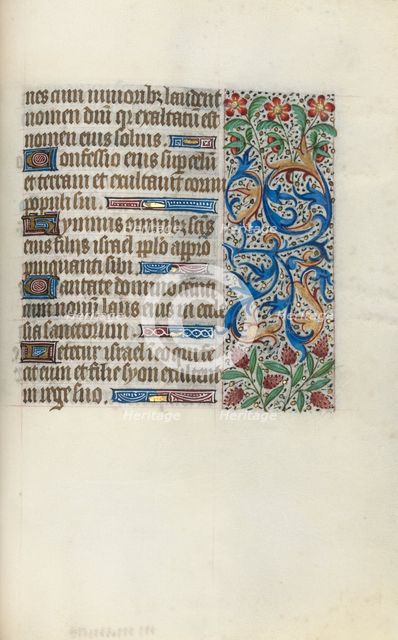 nes cum iunioribz laudent
nomen dnī qr exaltatū est
nomen eius solius.
Confessio eius sup celū
et terram et exaltauit cornu
populi sui.
Hympnus omnibz scīs
eius filiis israel pplō appro
pinquanti sibi.
Cantate domino canti
cum nouū laus eius ī eccle
sia sanctorum.
Letetur israel ī eo qui fe
cit eum et filie syon exultent
in rege suo.
Heritage
Heritage
Heritage